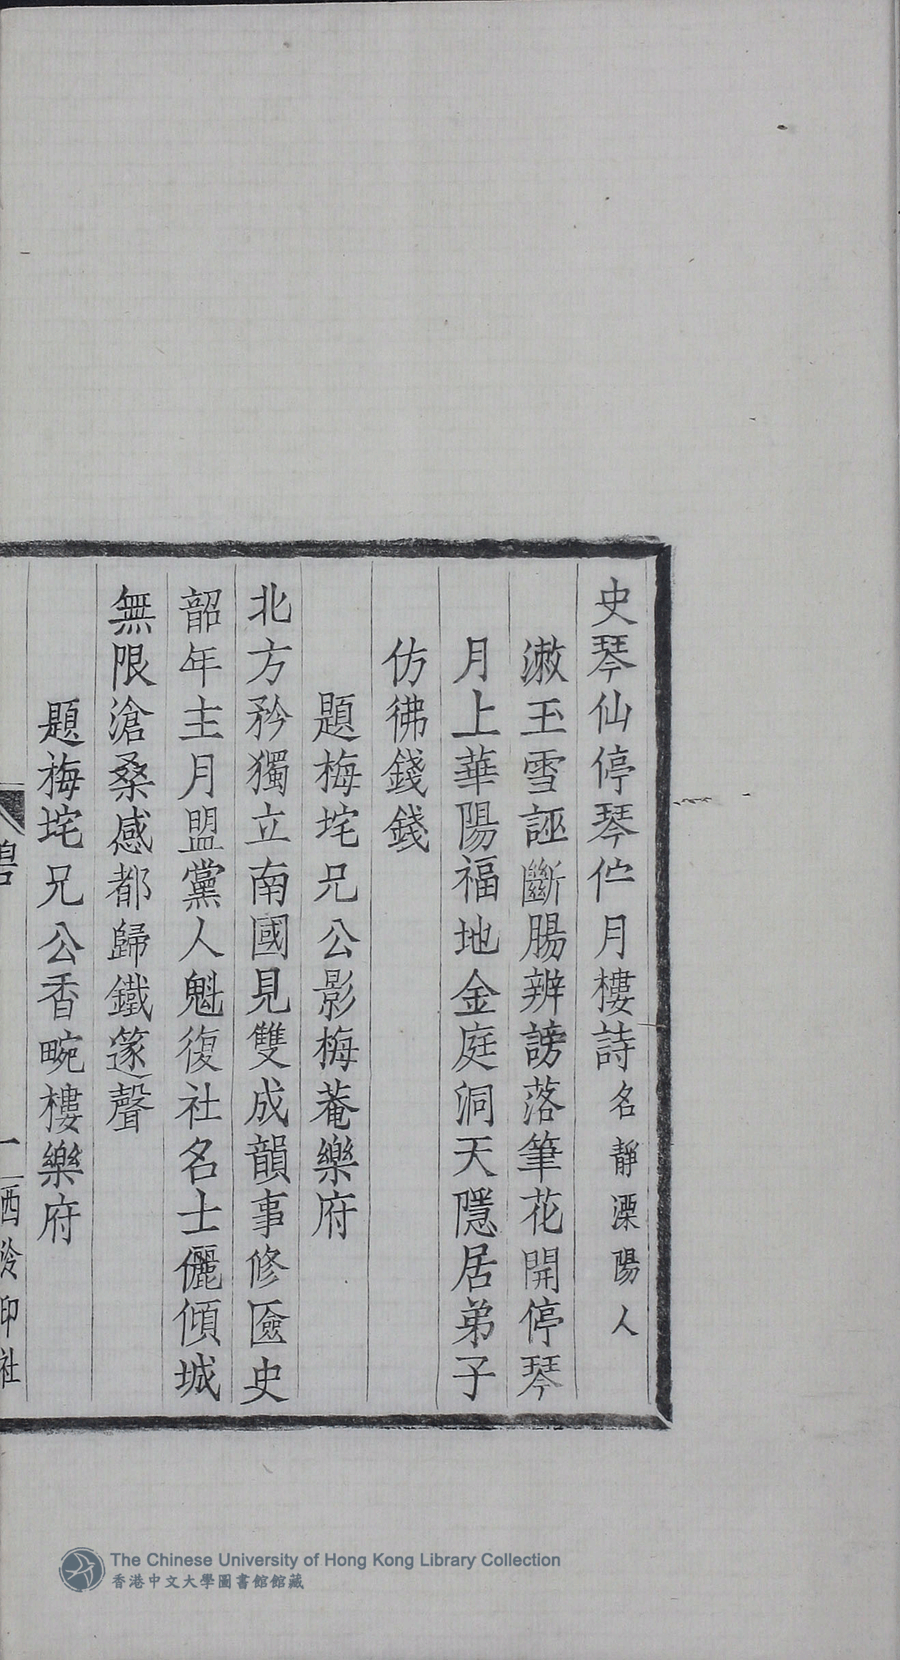 史琴仙停琴伫月樓詩名靜溧陽人
漱玉雪誣斷腸辨謗落筆花開停琴
月上華陽福地金庭洞天隱居弟子
仿彿錢錢
題梅垞兄公影梅菴樂府
北方矜獨立南國見雙成韻事修匳史
韶年主月盟黨人魁復社名士儷傾城
無限滄桑感都歸鐵篴聲
題梅垞兄公香畹樓樂府
一 西泠印社
The Chinese University of Hong Kong Library Collection
香港中文大學圖書館館藏